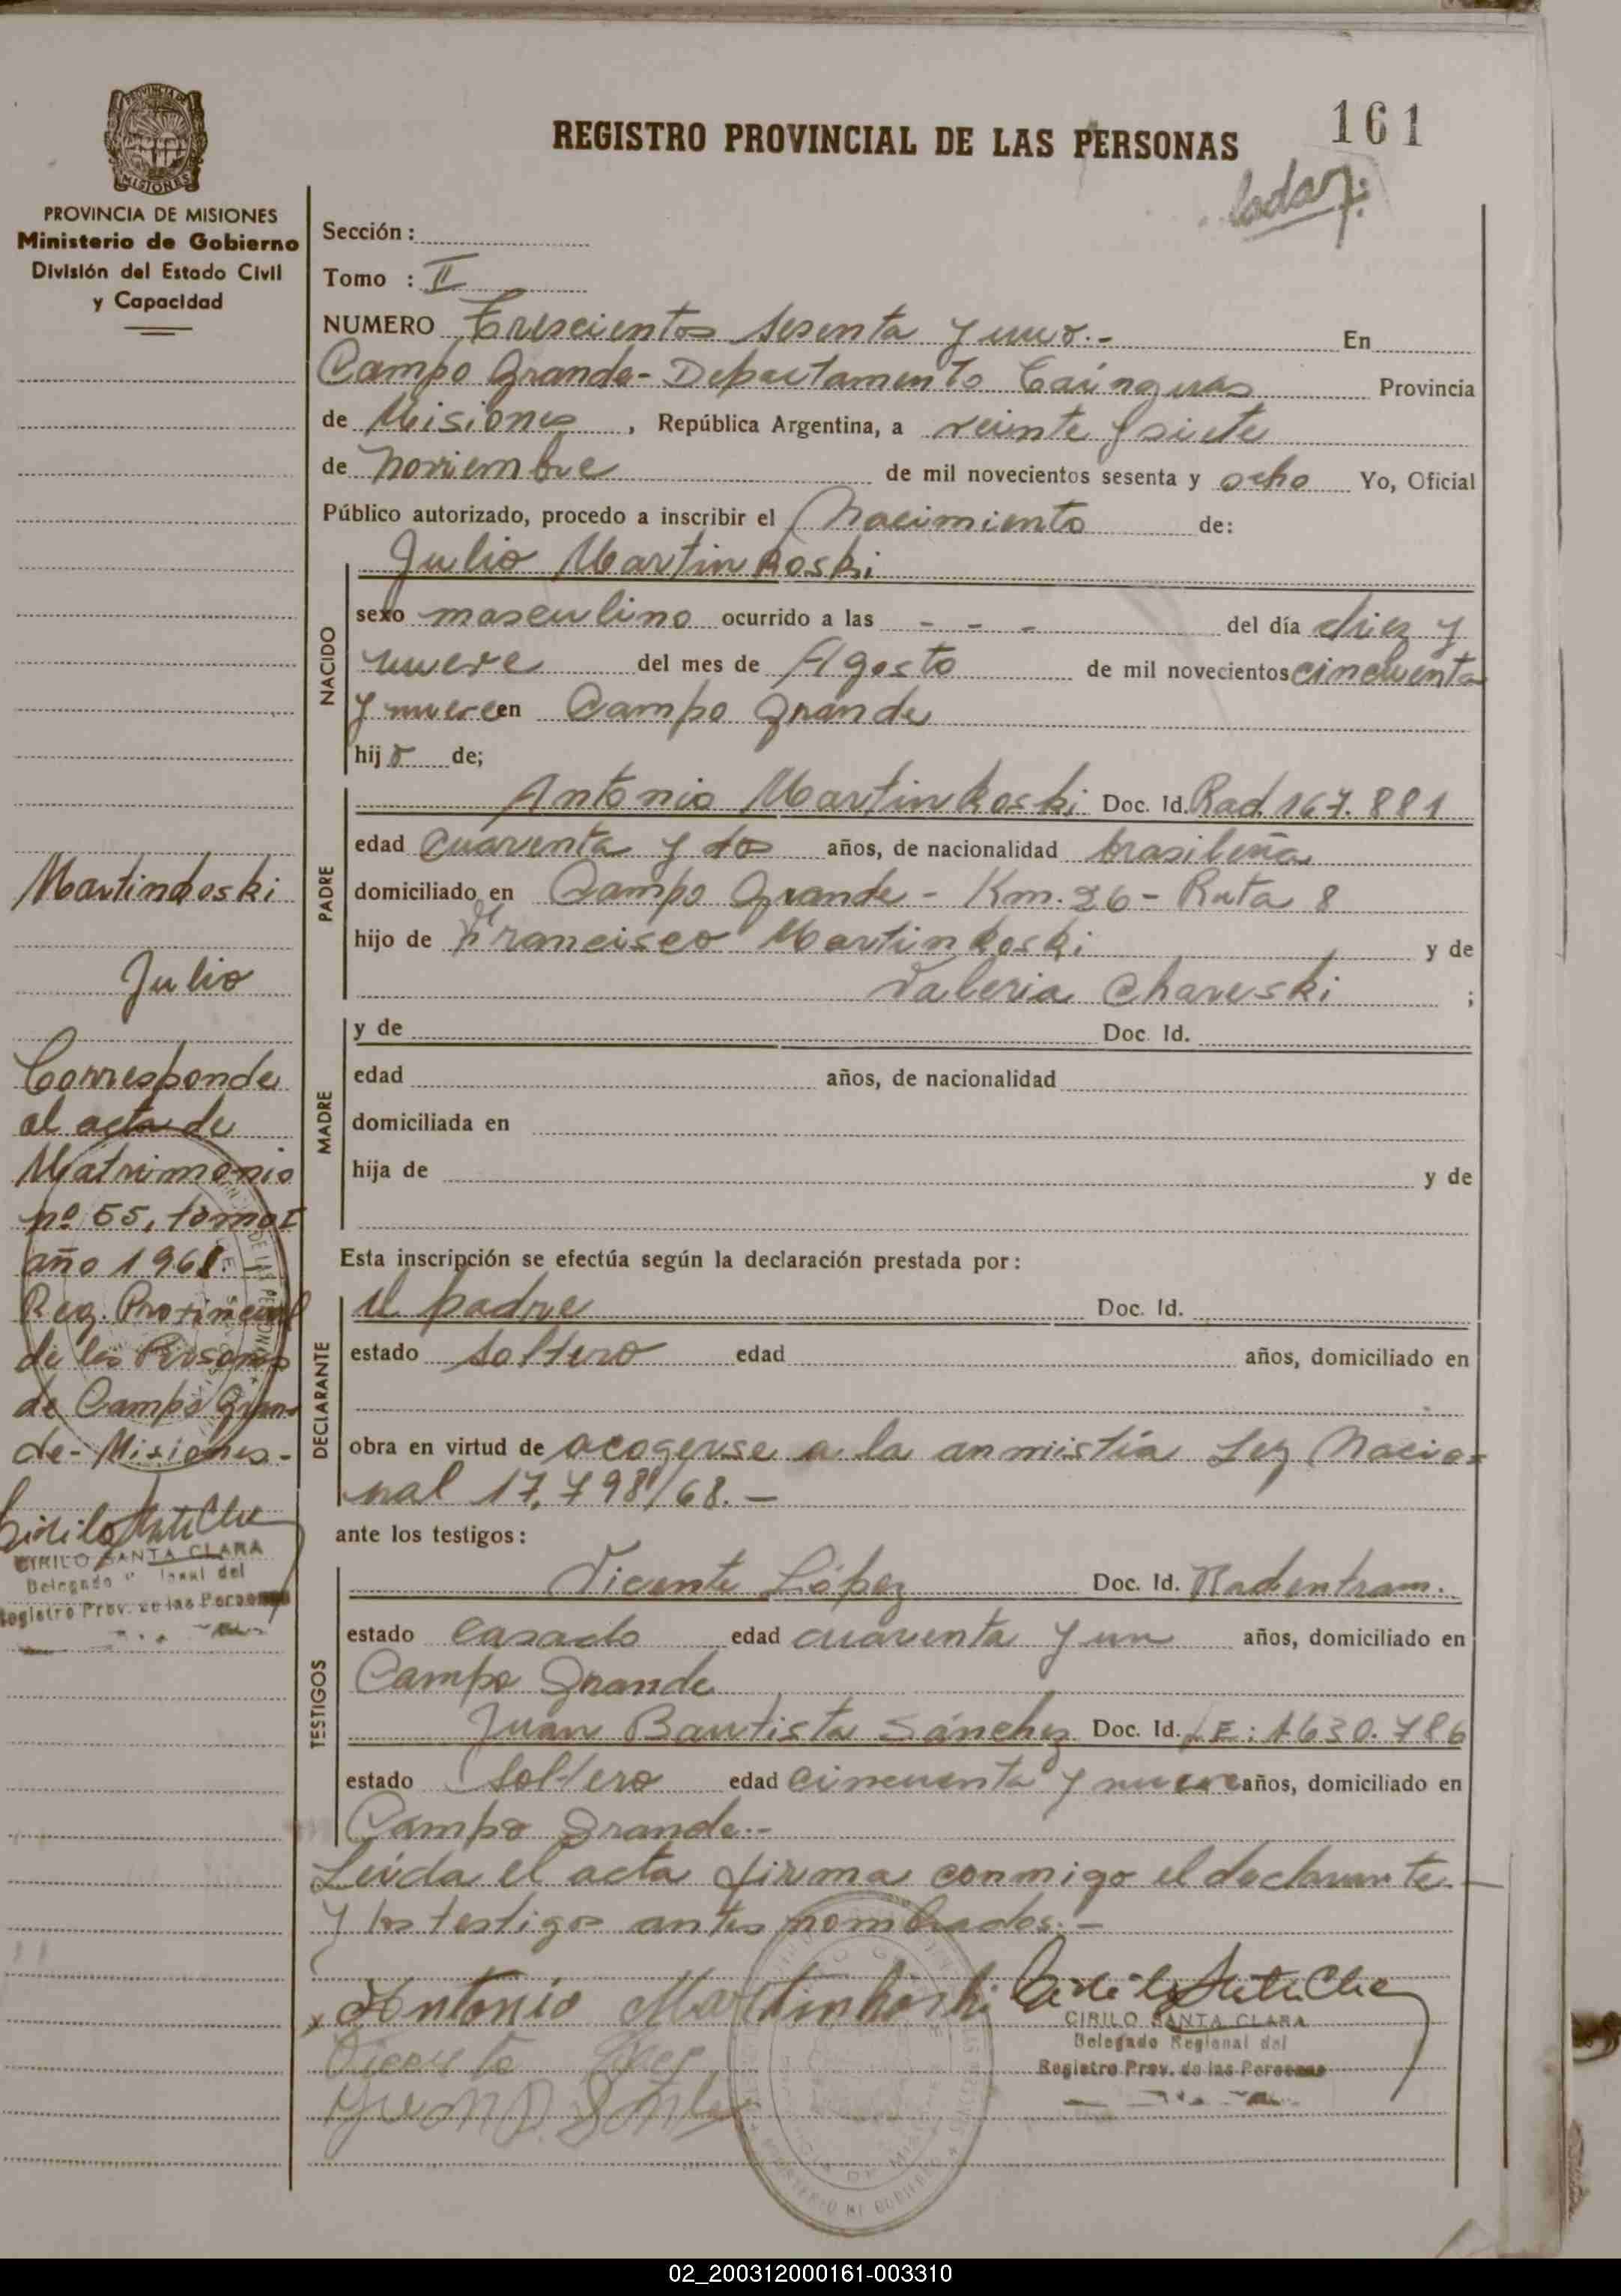 161
REGISTRO PROVINCIAL DE LAS PERSONAS
PROVINCIA DE MISIONES
Ministerio de Gobierno
División del Estado Civil
y Capacidad
Sección :
Tomo : II
NUMERO Trescientos sesenta y uno.- En
Campo Grande- Departamento Cainguas Provincia
de Misiones , República Argentina, a veinte y siete
de noviembre de mil novecientos sesenta y ocho Yo, Oficial
Público autorizado, procedo a inscribir el Nacimiento de:
Julio Martinkoski
NACIDO
sexo masculino ocurrido a las - - - del día diez y
nueve del mes de Agosto de mil novecientos cincuenta
y nueve en Campo Grande
hijo de;
PADRE
Antonio Martinkoski Doc. Id. Rad 167.881
edad cuarenta y dos años, de nacionalidad brasileña
domiciliado en Campo Grande - Km. 26 - Ruta 8
hijo de Francisco Martinkoski y de
Valeria Chaveski ;
MADRE
y de Doc. Id.
edad años, de nacionalidad
domiciliada en
hija de y de
Esta inscripción se efectúa según la declaración prestada por :
DECLARANTE
el padre Doc. Id.
estado soltero edad años, domiciliado en
obra en virtud de acogerse a la anmistía Ley Nacio-
nal 17.798/68.-
ante los testigos :
TESTIGOS
Vicente López Doc. Id. Rad. en tram.
estado casado edad cuarenta y un años, domiciliado en
Campo Grande
Juan Bautista Sánchez Doc. Id. LE: 1.630.786
estado soltero edad cincuenta y nueve años, domiciliado en
Campo Grande.-
Leída el acta firma conmigo el declarante
y los testigos antes nombrados.-
Antonio Martinkoski
CIRILO SANTA CLARA
Delegado Regional del
Registro Prov. de las Personas
Martinkoski
Julio
Corresponde
al acta de
Matrimonio
nº 55, tomo I
año 1961.
Reg. Provincial
de las Personas
de Campo Gran-
de- Misiones-
CIRILO SANTA CLARA
Delegado Regional del
Registro Prov. de las Personas
02_200312000161-003310